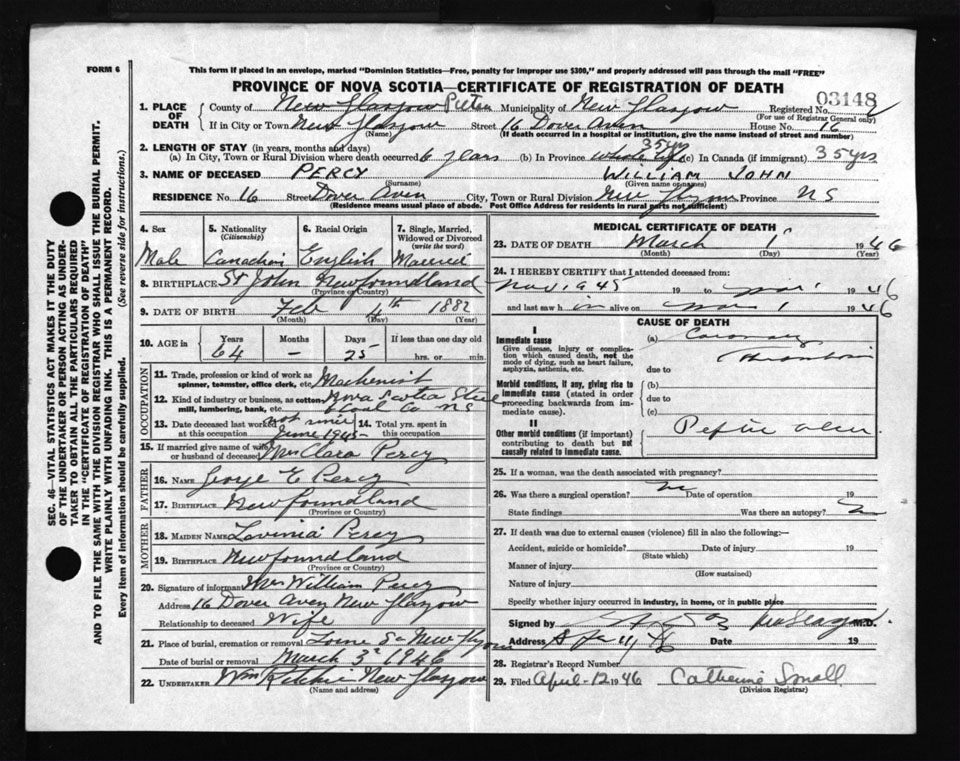 FORM 6
This form if placed in an envelope, marked "Dominion Statistics—Free, penalty for improper use $300," and properly addressed will pass through the mail "FREE"
PROVINCE OF NOVA SCOTIA—CERTIFICATE OF REGISTRATION OF DEATH
SEC. 46—VITAL STATISTICS ACT MAKES IT THE DUTY
OF THE UNDERTAKER OR PERSON ACTING AS UNDER-
TAKER TO OBTAIN ALL THE PARTICULARS REQUIRED
IN THE "CERTIFICATE OF REGISTRATION OF DEATH"
AND TO FILE THE SAME WITH THE DIVISION REGISTRAR WHO SHALL ISSUE THE BURIAL PERMIT.
WRITE PLAINLY WITH UNFADING INK. THIS IS A PERMANENT RECORD.
Every item of information should be carefully supplied. (See reverse side for instructions.)
1. PLACE OF DEATH County of New Glasgow Pictou Municipality of New Glasgow Registered No. 03148
(For use of Registrar General only)
If in City or Town New Glasgow Street 16 Dover Aven House No. 16
(Name) (If death occurred in a hospital or institution, give the name instead of street and number)
2. LENGTH OF STAY (in years, months and days) 35 yrs
(a) In City, Town or Rural Division where death occurred 6 years (b) In Province whole life (c) In Canada (if immigrant) 35 yrs
3. NAME OF DECEASED PERCY WILLIAM JOHN
(Surname) (Given name or names)
RESIDENCE No. 16 Street Dover Aven City, Town or Rural Division New Glasgow Province NS
(Residence means usual place of abode. Post Office Address for residents in rural parts not sufficient)
4. Sex 5. Nationality (Citizenship) 6. Racial Origin 7. Single, Married, Widowed or Divorced (write the word)
Male Canadian English Married
8. BIRTHPLACE St John Newfoundland
(Province or Country)
9. DATE OF BIRTH Feb 4th 1882
(Month) (Day) (Year)
10. AGE in Years Months Days If less than one day old
64 – 25 hrs. or min.
OCCUPATION
11. Trade, profession or kind of work as spinner, teamster, office clerk, etc. Machenist
12. Kind of industry or business, as cotton-mill, lumbering, bank, etc. Nova Scotia Steel
& Coal Co NS
13. Date deceased last worked at this occupation not since June 1945 14. Total yrs. spent in this occupation
15. If married give name of wife or husband of deceased Mrs Clara Percy
FATHER
16. NAME George E Percy
17. BIRTHPLACE Newfoundland
(Province or Country)
MOTHER
18. MAIDEN NAME Lavinia Percy
19. BIRTHPLACE Newfoundland
(Province or Country)
20. Signature of informant Mrs William Percy
Address 16 Dover Aven New Glasgow
Relationship to deceased Wife
21. Place of burial, cremation or removal Lorne St New Glasgow
Date of burial or removal March 3rd 1946
22. UNDERTAKER Wm Ritchie New Glasgow
(Name and address)
MEDICAL CERTIFICATE OF DEATH
23. DATE OF DEATH March 1 1946
(Month) (Day) (Year)
24. I HEREBY CERTIFY that I attended deceased from:
Nov 1945 19 to Mar 1 1946
and last saw h im alive on Mar 1 1946
CAUSE OF DEATH
I
Immediate cause
Give disease, injury or complication which caused death, not the mode of dying, such as heart failure, asphyxia, asthenia, etc.
(a) Coronary
thrombosis
due to
Morbid conditions, if any, giving rise to immediate cause (stated in order proceeding backwards from immediate cause).
(b)
due to
(c)
II
Other morbid conditions (if important) contributing to death but not causally related to immediate cause.
Peptic ulcer
25. If a woman, was the death associated with pregnancy?
26. Was there a surgical operation? no Date of operation 19
State findings Was there an autopsy? no
27. If death was due to external causes (violence) fill in also the following:—
Accident, suicide or homicide? Date of injury 19
(State which)
Manner of injury
(How sustained)
Nature of injury
Specify whether injury occurred in industry, in home, or in public place
Signed by M.D.
Address Date 19
28. Registrar's Record Number
29. Filed April-12 1946 Catherine Small
(Division Registrar)